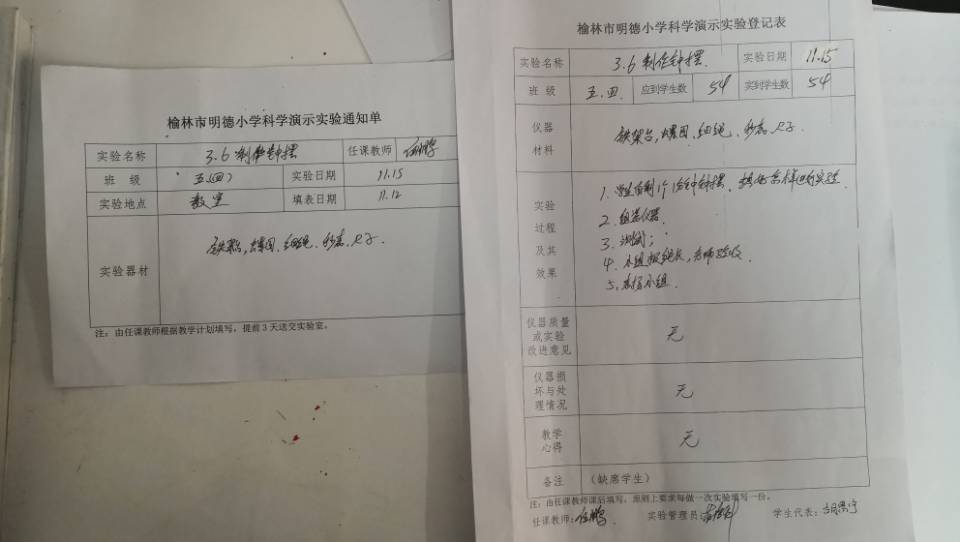 榆林市明德小学科学演示实验通知单
实验名称 3.6 制作钟摆 任课教师
班 级 五(四) 实验日期 11.15
实验地点 教室 填表日期 11.12
实验器材 铁架台,螺母,细绳、秒表、尺子
注：由任课教师根据教学计划填写，提前3天送交实验室。
榆林市明德小学科学演示实验登记表
实验名称 3.6 制作钟摆. 实验日期 11.15
班 级 五.四. 应到学生数 54 实到学生数 54
仪器
材料
铁架台,螺母,细绳、秒表、尺子
实验
过程
及其
效果
2. 组装仪器
3. 测试;
5.
仪器质量
或实验
改进意见
无
仪器损
坏与处
理情况
无
教学
心得
无
备注 （缺席学生）
注：由任课教师课后填写，原则上要求每做一次实验填写一份。
任课教师: 实验管理员: 学生代表: